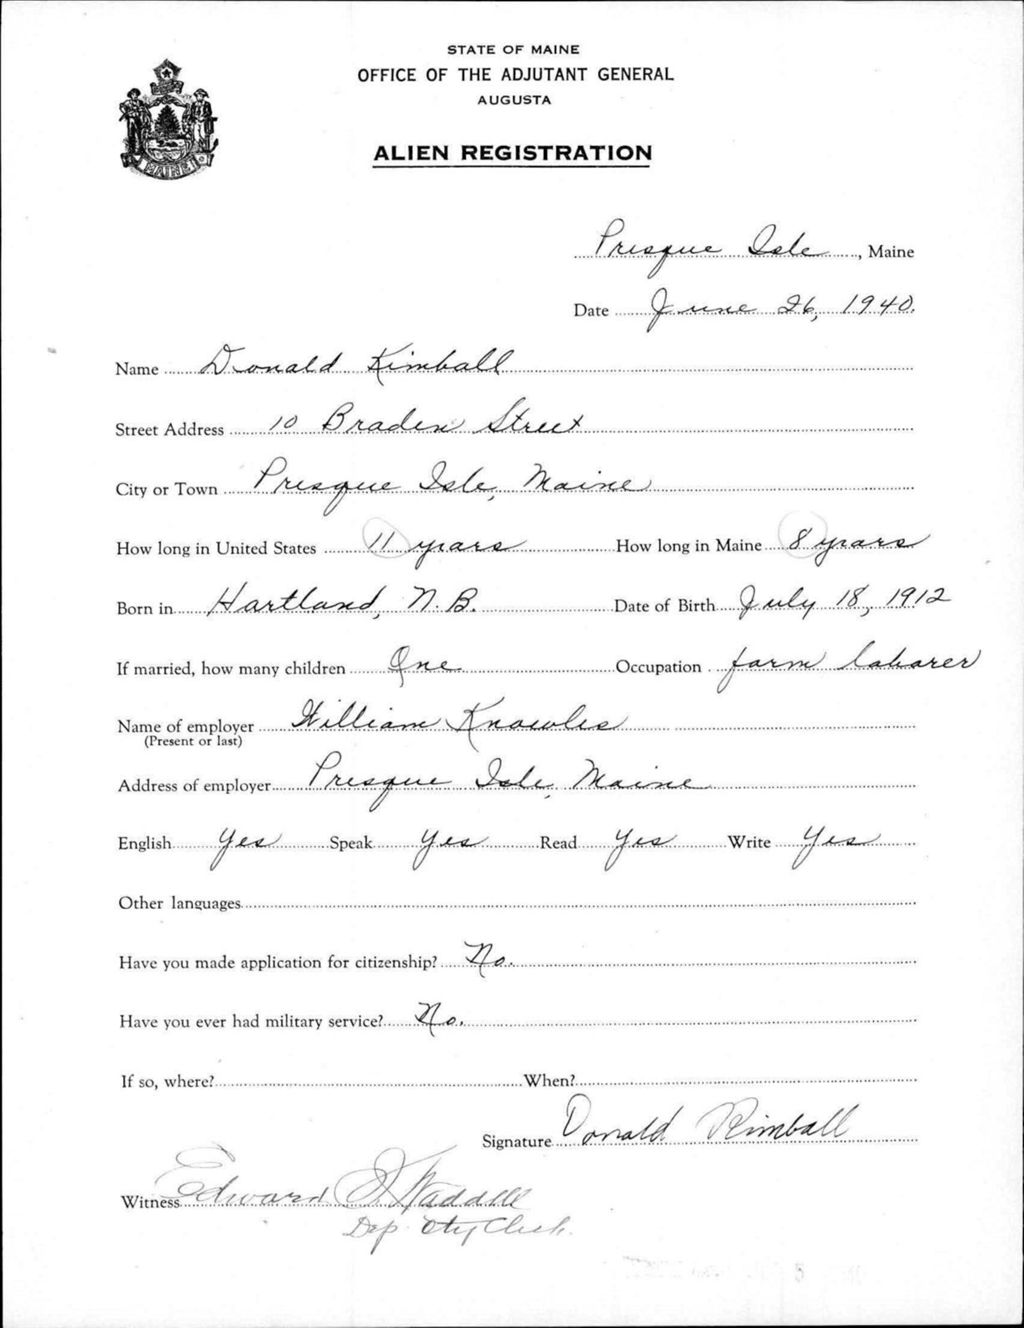 STATE OF MAINE
OFFICE OF THE ADJUTANT GENERAL
AUGUSTA
ALIEN REGISTRATION
MAINE
Presque Isle, Maine
Date June 26, 1940.
Name Donald Kimball
Street Address 10 Braden Street
City or Town Presque Isle, Maine
How long in United States 11 years How long in Maine 8 years
Born in Hartland, N.B. Date of Birth July 18, 1912
If married, how many children One Occupation farm laborer
Name of employer William Knowles
(Present or last)
Address of employer Presque Isle, Maine
English Yes Speak Yes Read Yes Write Yes
Other languages
Have you made application for citizenship? No.
Have you ever had military service? No.
If so, where? When?
Signature Donald Kimball
Witness Edward J. Waddell
Dep City Clerk.